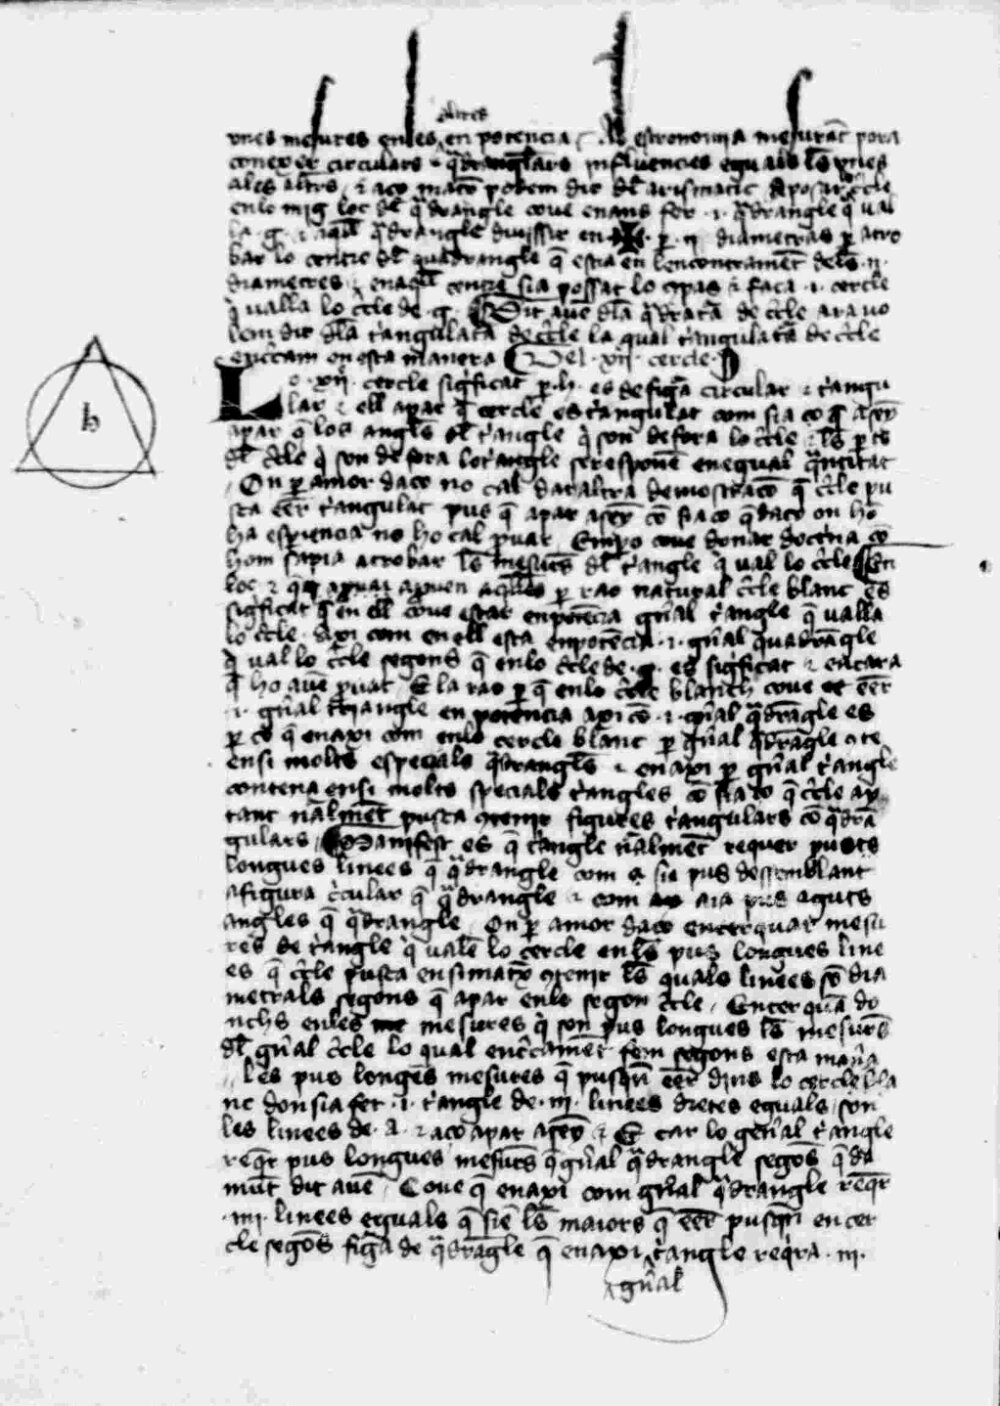 altres
unes mesures en les en potencia / La estronomia mesurar pora
conexer circulars quadranglars influencies eguals les unes
a les altres / e aço matex podem dir del arismatic
en lo mig loc del qdrangle cove enans fer .i. qdrangle q val
la .g. e aquell qdrangle divissir en .per .ii. diametras per atro
bar lo centre del quadrangle q esta en lencontrament dels .ii.
diametres e en aquell centre sia possat lo compas e faça .i. cercle
q valla lo cercle de .g. Dit avem de la qdratura de cercle ara vo
lem dir de la triangulatura de cercle la qual triangulatura de cercle
encercam en esta manera Del .xii. cercle
Lo .xii. cercle significat per .h. es de figura circular e triangu
lar e ell apar q cercle es triangulat com sia ço q a seny
apar q los angles del triangle q son defora lo cercle e les parts
del cercle q son de fora lo triangle se responen en egual quantitat
On per amor daço no cal dar altra demostracio q cercle pu
sca esser triangulat pus q apar a seny com sia ço q daço on hom
ha esperiencia no ho cal provar Empero cove donar doctrina com
hom sapia atrobar les mesures del triangle q val lo cercle En
loc e q per rao natural cercle blanc es
significat q en ell cove estar en potencia gnal triangle q valla
lo cercle Axi com en ell esta en potencia .i. gnal quadrangle
q val lo cercle segons q en lo cercle de .g. es significat e encara
q ho avem provat E la rao per q en lo cercle blanch cove esser
.i. gnal triangle en potencia axi com .i. gnal qdrangle es
per ço q en axi com en lo cercle blanc per gnal qdrangle conte
en si molts especials qdrangles e en axi per gnal triangle
contena en si molts specials triangles com sia ço q cercle ay
tant nalment pusca contenir figures triangulars com qdran
gulars Manifest es q triangle nalment requer
longues linees q qdrangle com sia pus dessemblant
a figura circular q qdrangle e com aia pus aguts
angles q qdrangle On per amor daço encerquar mesu
res de triangle q valen lo cercle en les pus longues line
es q cercle pusca en si matex contenir les quals linees son dia
metrals segons q apar en lo segon cercle / Encerquam do
nchs en les mesures q son pus longues les mesures
del gnal cercle lo qual encercament fem segons esta manera
Les pus longues mesures q pusquen esser dins lo cercle bla
nc don sia fet .i. triangle de .iii. linees dretes eguals son
les linees de .a. e aço apar a seny e car lo general triangle
requer pus longues mesures q gnal qdrangle segons q da
munt dit avem / Cove q en axi com gnal qdrangle requer
.iiii. linees eguals q sien les maiors q esser pusquen en cer
cle segons figura de qdrangle q en axi triangle requira .iii.
gnal
h